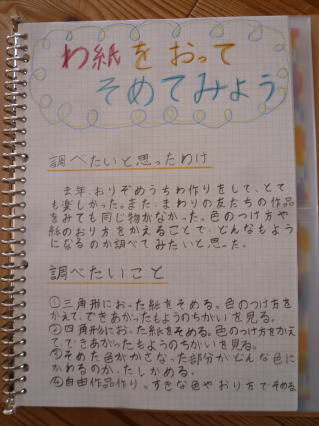 わ紙をおって
そめてみよう
調べたいと思ったわけ
去年、おりぞめうちわ作りをして、とて
も楽しかった。また、まわりの友だちの作品
をみても同じ物がなかった。色のつけ方や
紙のおり方をかえることで、どんなもよう
になるのか調べてみたいと思った。
調べたいこと
①三角形におった紙をそめる。色のつけ方を
かえて、できあがったもようのちがいを見る。
②四角形におった紙をそめる。色のつけ方をかえ
て、できあがったもようのちがいを見る。
③そめた色がかさなった部分がどんな色に
かわるのか、たしかめる。
④自由作品作り。すきな色やおり方でそめる